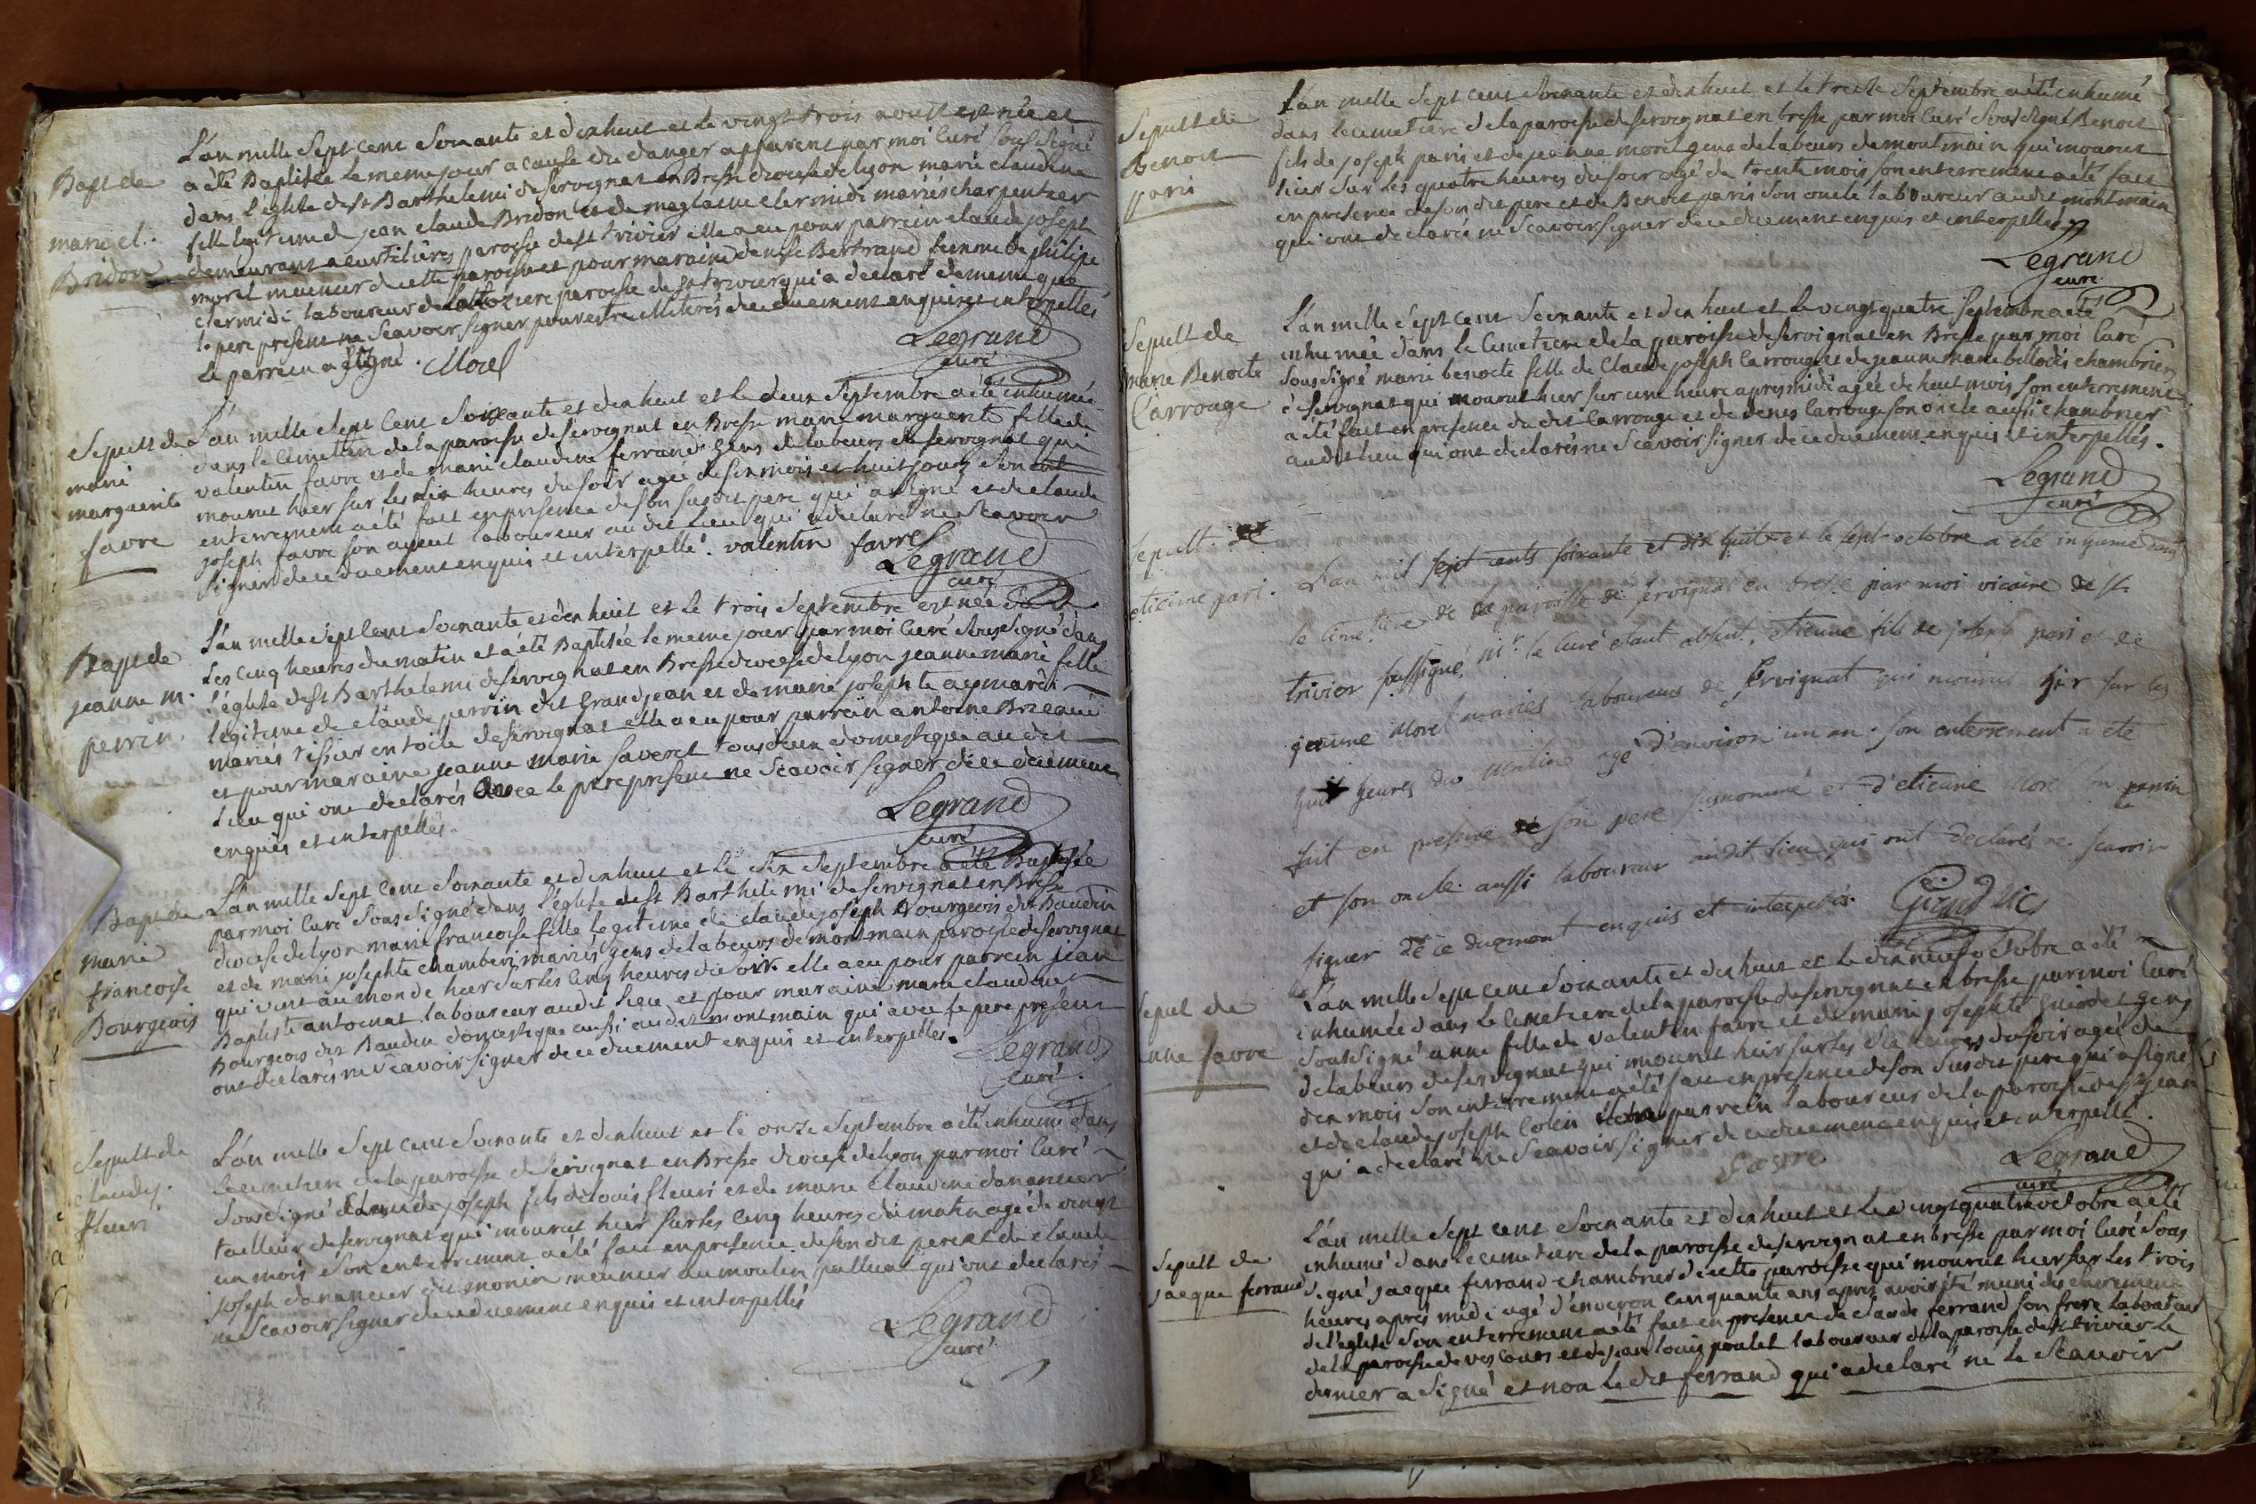 Bapt de
marie cl.
Bridon
L'an mille sept cent soixante et dix huit et le vingt trois aoust est née et
a été Baptisée le meme jour a cause du danger apparent par moi Curé sous signé
dans l'eglise de st Barthelemi de servignat en Bresse diocese de lyon marie claudine
fille legitime de jean claude Bridon et de clermidi mariés charpentier
demeurant a paroisse de st trivier elle a eu pour parrein claude joseph
morel meunier de cette paroisse et pour maraine denise Bertrand femme de philipe
clermidi laboureur de paroisse de st trivier qui a declaré de meme que
le pere present ne scavoir signer pour estre illiterés de ce duement enquis et interpellés
le parrein a signé . Morel
Legrand
curé
Sepult de
marie
marguerite
favre
L'an mille sept cent soixante et dix huit et le deux septembre a été inhumée
dans le cimetiere de la paroisse de servignat en Bresse marie marguerite fille de
valentin favre et de marie claudine ferrand gens de labeurs de servignat qui
mourut hier sur les six heures du soir agée de six mois et huit jours son
enterrement a été fait en presence de son susdit pere qui a signé et de claude
joseph favre son ayeul laboureur au dit lieu qui a declaré ne scavoir
signer de ce duement enquis et interpellé . valentin favre
Legrand
curé
Bapt de
jeanne m.
perrin.
L'an mille sept cent soixante et dix huit et le trois septembre est née sur
les cinq heures du matin et a été Baptisée le meme jour par moi Curé sous signé dans
l'eglise de st Barthelemi de servignat en Bresse diocese de lyon jeanne marie fille
legitime de claude perrin dit Grandjean et de marie josephte
mariés tissier en toile de servignat elle a eu pour parrein antoine
et pour maraine jeanne marie tous deux domestique au dit
lieu qui ont declarés avec le pere present ne scavoir signer de ce duement
enquis et interpellés.
Legrand
curé
Bapt de
marie
francoise
Bourgeois
L'an mille sept cent soixante et dix huit et le six septembre a été Baptisée
par moi Curé sous signé dans l'eglise de st Barthelemi de servignat en Bresse
diocese de lyon marie francoise fille legitime de claude joseph Bourgeois dit Baudin
et de marie josephte chamberi mariés gens de labeurs de montmain paroisse de servignat
qui vint au monde hier sur les cinq heures du soir. elle a eu pour parrein jean
Baptiste antoinat laboureur au dit lieu et pour maraine marie claudine
Bourgeois dit Baudin domestique aussi au dit montmain qui avec le pere present
ont declarés ne scavoir signer de ce duement enquis et interpellés.
Legrand
curé.
Sepult de
claude j.
fleuri
L'an mille sept cent soixante et dix huit et le onze septembre a été inhumé dans
le cimetiere de la paroisse de servignat en Bresse diocese de lyon par moi Curé
sous signé claude joseph fils de louis fleuri et de marie claudine dananceur
tailleur de servignat qui mourut hier sur les cinq heures du matin agé de vingt
un mois son enterrement a été fait en presence de son dit pere et de claude
joseph dananceur dit monin meunier au moulin qui ont declarés
ne scavoir signer de ce duement enquis et interpellés
Legrand
curé
Sepult de
Benoit
paris
L'an mille sept cent soixante et dix huit et le treize septembre a été inhumé
dans le cimetiere de la paroisse de servignat en bresse par moi Curé sous signé Benoit
fils de joseph paris et de jeanne morel gens de labeurs de montmain qui mourut
hier sur les quatre heures du soir agé de trente mois son enterrement a été fait
en presence de son dit pere et de Benoit paris son oncle laboureur au dit montmain
qui ont declarés ne scavoir signer de ce duement enquis et interpellés
Legrand
curé
Sepult de
marie Benoite
Carrouge
L'an mille sept cent soixante et dix huit et le vingt quatre septembre a été
inhumée dans le Cimetiere de la paroisse de servignat en Bresse par moi Curé
sous signé marie benoite fille de Claude joseph Carrouge et de jeanne marie chambrier
a servignat qui mourut hier sur une heure apres midi agée de huit mois son enterrement
a été fait en presence du dit Carrouge et de denis Carrouge son oncle aussi chambrier
au dit lieu qui ont declarés ne scavoir signer de ce duement enquis et interpellés.
Legrand
curé
sepult. de
etienne pari.
L'an mil sept cents soixante et dix huit et le sept octobre a été inhumé dans
le cimetiere de la paroisse de servignat en bresse par moi vicaire de st
trivier soussigné, mr. le curé etant absent. etienne fils de joseph pari et de
jeanne Morel mariés laboureurs de servignat qui mourut hier sur les
huit heures du matin agé d'environ un an. son enterrement a été
fait en presence de son pere susnommé et d'etienne Morel son parrin
et son oncle. aussi laboureur au dit lieu qui ont declarés ne scavoir
signer de ce duement enquis et interpellés.
vic
Sepult de
anne favre
L'an mille sept cent soixante et dix huit et le dix neuf octobre a été
inhumée dans le Cimetiere de la paroisse de servignat en bresse par moi Curé
sous signé anne fille de valentin favre et de marie josephte gens
de labeurs de servignat qui mourut hier sur les six heures du soir agée de
dix mois son enterrement a été fait en presence de son susdit pere qui a signé
et de claude joseph Colin son parrein laboureur de la paroisse de st jean
qui a declaré ne scavoir signer de ce duement enquis et interpellé.
favre
Legrand
curé
Sepult de
jacque ferrand
L'an mille sept cent soixante et dix huit et le vingt quatre octobre a été
inhumé dans le cimetiere de la paroisse de servignat en bresse par moi Curé sous
signé jacque ferrand chambrier de cette paroisse qui mourut hier sur les trois
heures après midi agé d'environ cinquante ans apres avoir été muni des sacremens
de l'eglise son enterrement a été fait en presence de claude ferrand son frere laboureur
de la paroisse de vescours et de jean louis poulet laboureur de la paroisse de st trivier le
dernier a signé et non le dit ferrand qui a declaré ne le scavoir